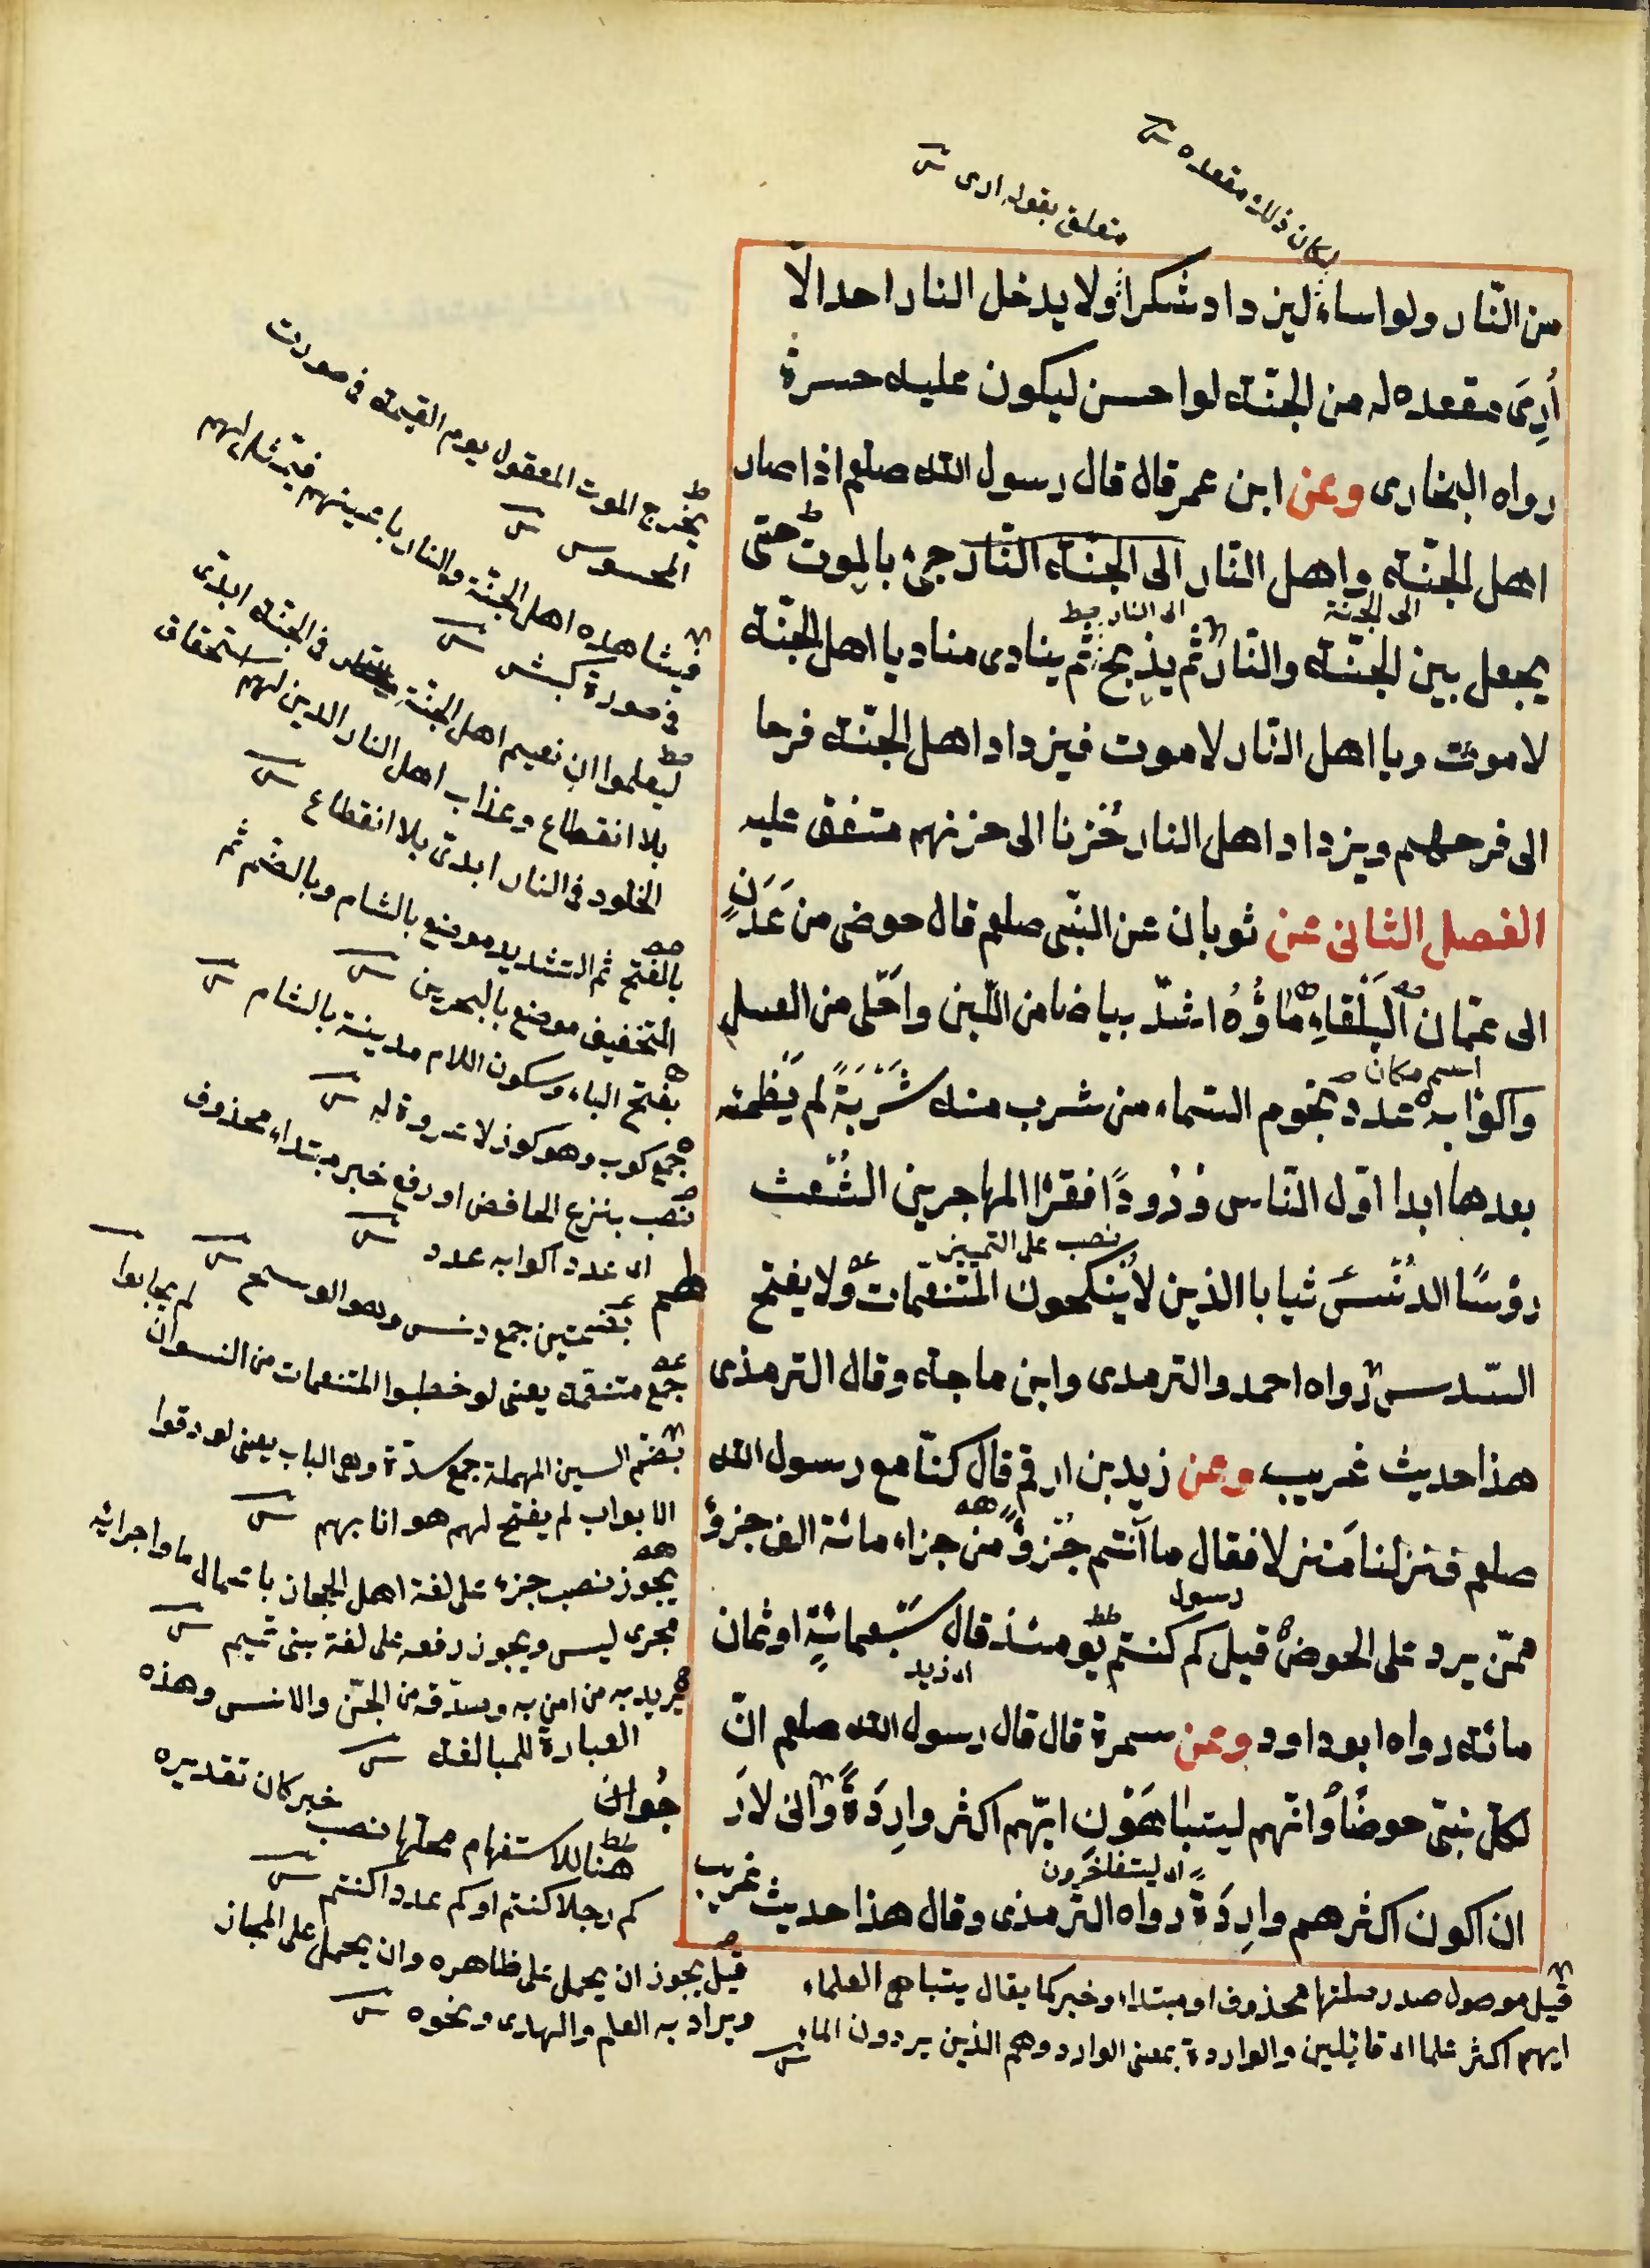 لكان ذلك مقعده
متعلق بقوله ارى
من النّار ولو اساء ليزداد شكرا ولا يدخل النار احد الّا
أُرِىَ مقعده له من الجنّة لو احسن ليكون عليه حسرة
رواه البخارى وعن ابن عمر قال قال رسول الله صلعم اذا صار
اهل الجنّة واهل النّار الى الجنّة النّار جىء بالموت حتى
الى الجنة
الى النار
يجعل بين الجنّة والنّار ثم يذبح ثم ينادى مناد يا اهل الجنّة
لا موت ويا اهل النّار لا موت فيزداد اهل الجنّة فرحا
الى فرحهم ويزداد اهل النار حُزنا الى حزنهم متفق عليه
الفصل الثانى عن ثوبان عن النبّى صلعم قال حوضى من عَدَنٍ
الى عمّان الْبَلْقاءِ مَاؤُهُ اشدّ بياضا من اللّبن واَحلى من العسل
اسم مكان
واكوابه عدد نجوم السّماء من شرب منه شَرْبَةً لم يَظمئه
بعدها ابدا اوّل النّاس وُرُودًا فقرٰا المهاجرين الشُعْث
نصب على التمييز
رؤسًا الدُنُسُ ثيابا الذين لا يُنكحون المُتنعّمات ولا يفتح
السّدس رواه احمد والترمدى وابن ماجة وقال الترمذى
هذا حديث غريب وعن زيد بن ارقم قال كنّا مع رسول الله
صلعم فنزلنا مَنزلا فقال ما اَنتم جُزؤٌ من جزاء مائة الف جزؤ
رسول
ممّن يرد على الحوض قيل كم كنتم يومئذ قال سَبعمائةٍ او ثمان
اى زيد
مائة رواه ابو داود وعن سمرة قال قال رسول الله صلعم انّ
لكل نبّى حوضًا وانّهم ليتباهَوْن ايّهم اكثر وارِدَةً وانى لاَرَ
اى ليتفاخرون
ان اكون اكثرهم وارِدَةً رواه الترمذى وقال هذا حديث غريب
يخرج الموت المعقول يوم القيمة فى صورت
المحسوس
فيشاهده اهل الجنّة والنار باعينهم فيتمثل لهم
فى صورة كبش
ليعلموا ان نعيم اهل الجنّة فى الجنّة ابدّى
بلا انقطاع وعذاب اهل النار الذين لهم استحقاق
الخلود فى النار ابدىّ بلا انقطاع
بالفتح ثم التشديد موضع بالشام وبالضّم ثم
التخفيف موضع بالبحرين
بفتح الباء وسكون اللام مدينة بالشام
جمع كوب وهو كوز لا عروة له
نصب بنزع الخافض او رفع خبر مبتداء محذوف
اى عدد اكوابه عدد
بضمتين جمع دنس وهو الوسخ
جمع متنعّمة يعنى لو خطبوا المتنعمات من النسوان
لم يجابوا
بضمّ السين المهملة جمع سدّة وهى الباب يعنى لو دقوا
الابواب لم يفتح لهم هوانا بهم
يجوز نصب جزء على لغة اهل الحجاز باعمال ما واجرائه
مجرى ليس ويجوز رفعه على لغة بنى تميم
يريد به من امن به وصدّقه من الجّن والانس وهذه
العبارة للمبالغة
هنا للاستفهام محلّها نصب خبر كان تقديره
كم رجلا كنتم او كم عددا كنتم
قيل يجوز ان يحمل على ظاهره وان يحمل على المجاز
ويراد به العلم والهدى ونحوه
قيل موصول صدر صلتها محذوف او مبتداء وخبر كما يقال يتباهى العلماء
ايهم اكثر علما اى قائلين والواردة بمعنى الوارد وهم الذين يردون الماء